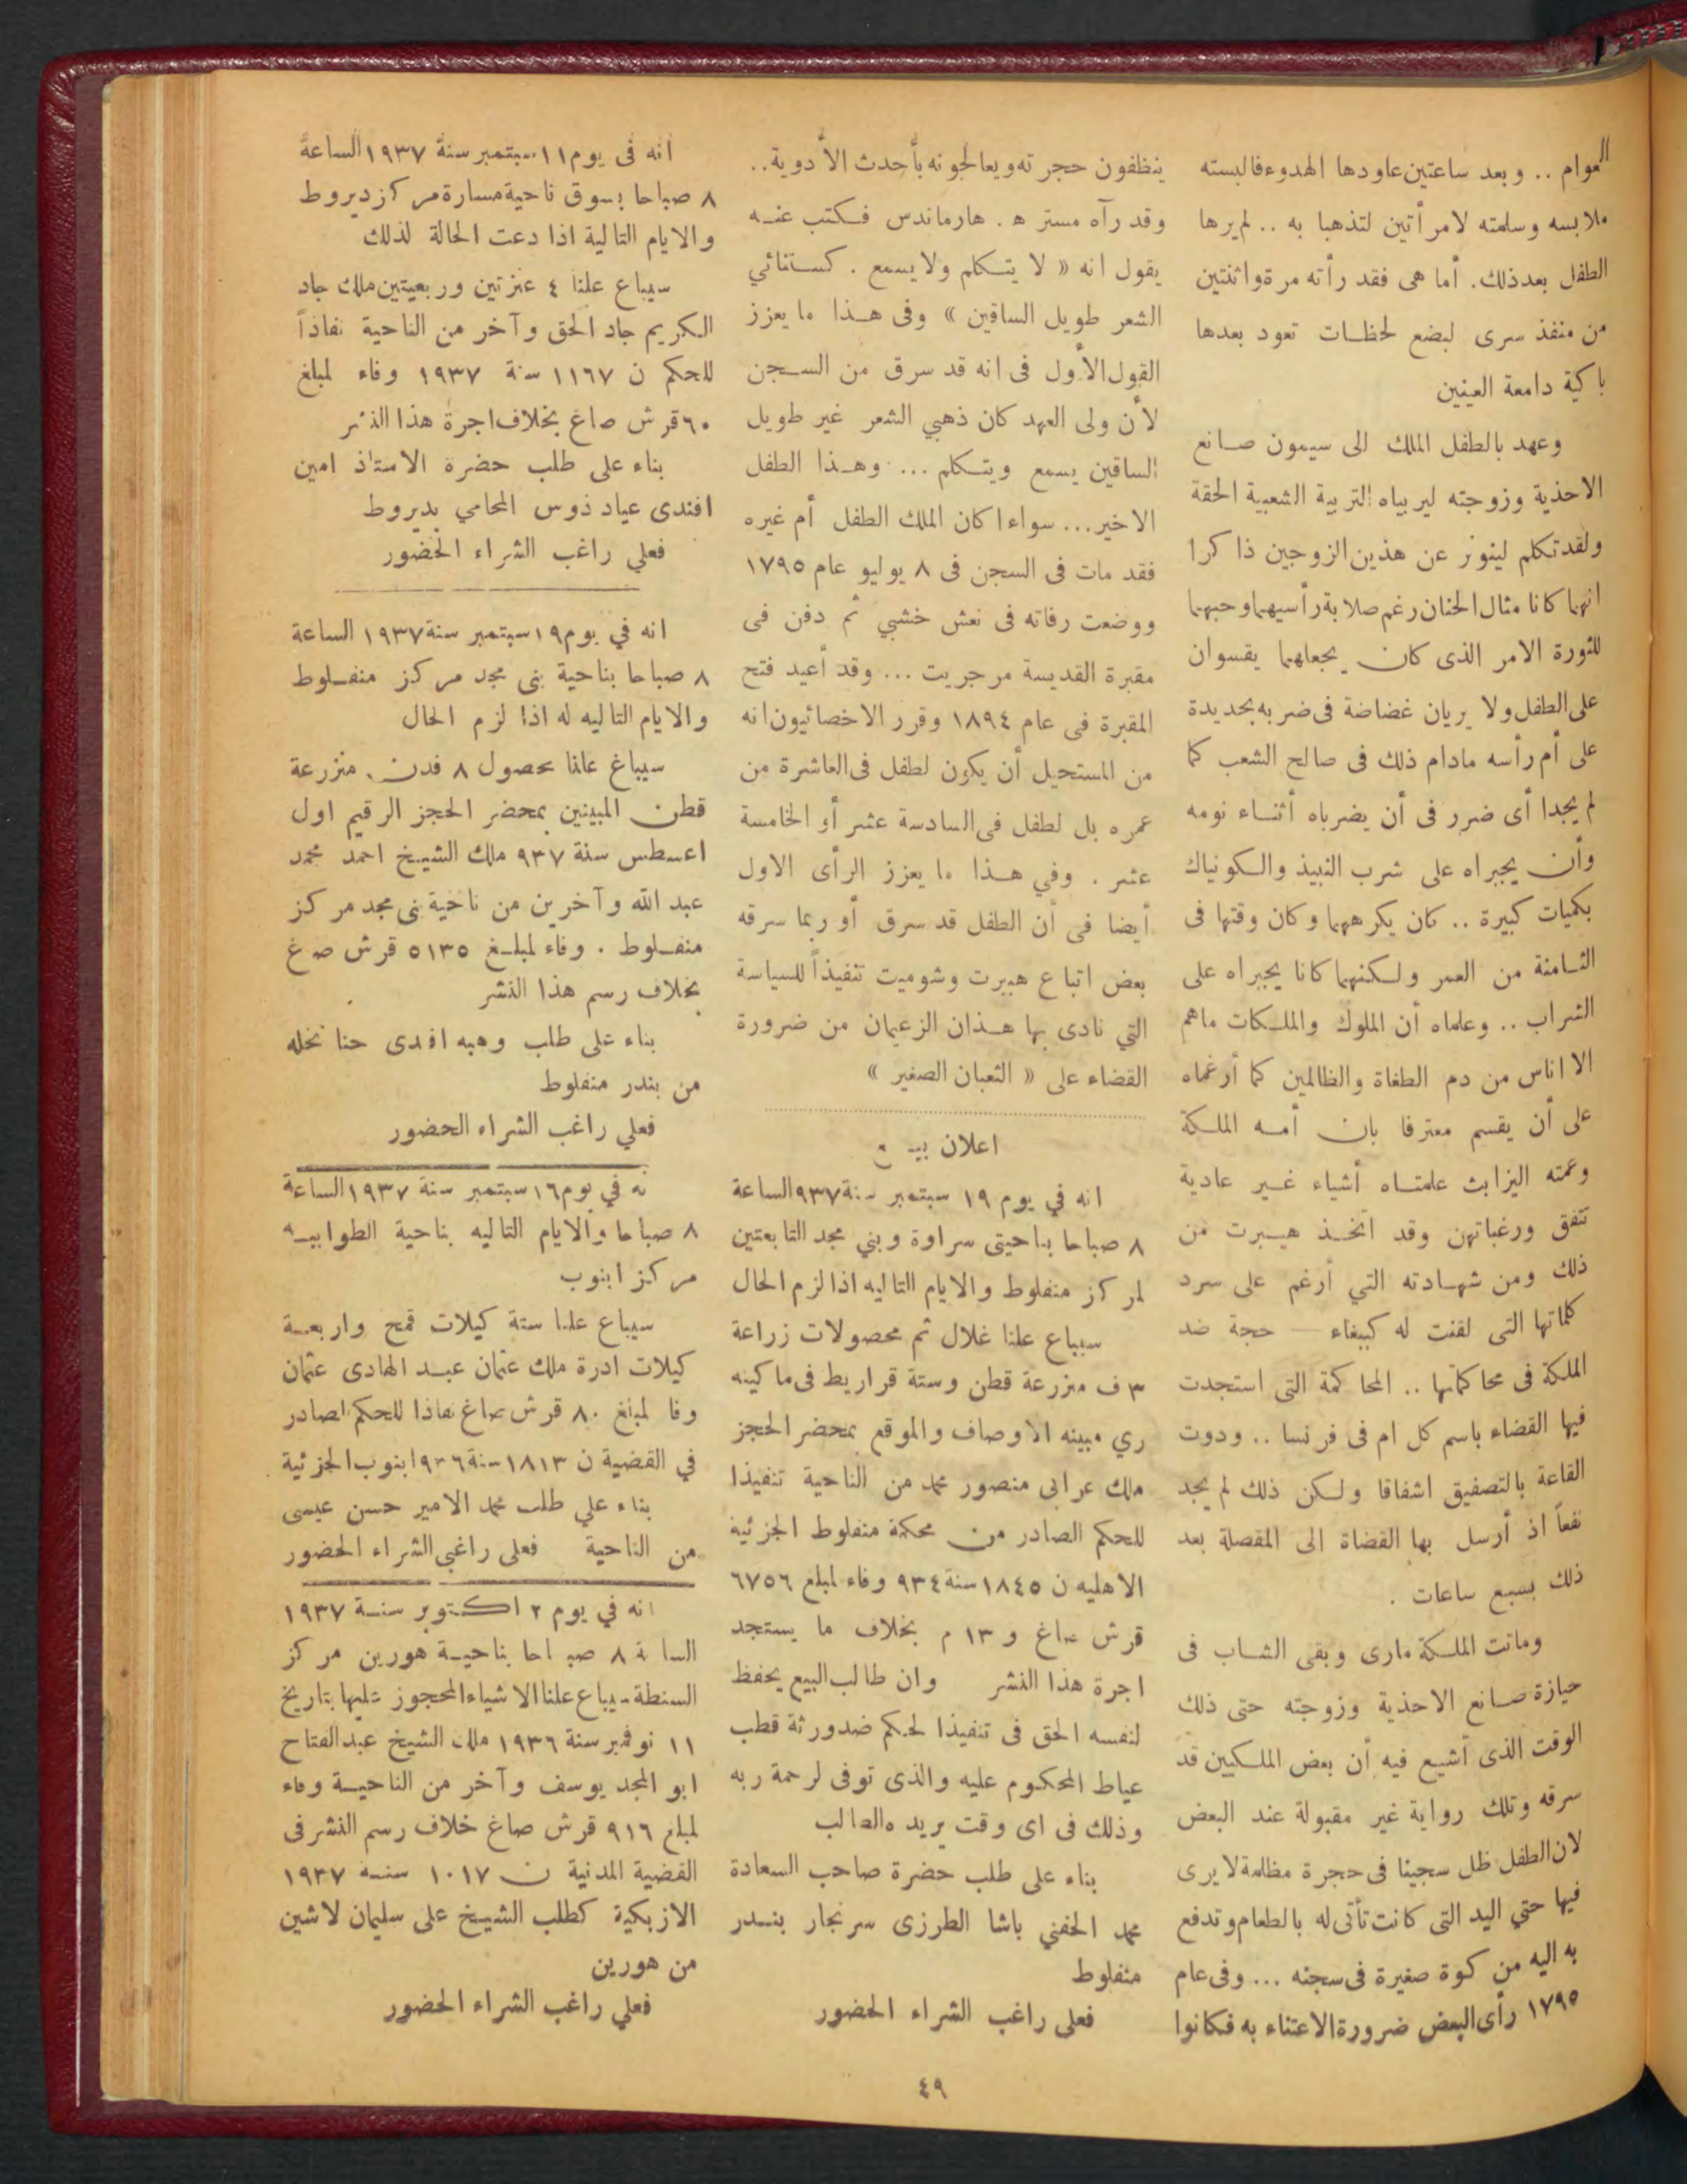 العوام .. وبعد ساعتين عاودها الهدوء فالبسته
ملابسه وسلمته لامرأتين لتذهبا به .. لم يرها
الطفل بعد ذلك. أما هى فقد رأته مرة واثنتين
من منفذ سرى لبضع لحظات تعود بعدها
باكية دامعة العينين
وعهد بالطفل الملك الى سيمون صانع
الاحذية وزوجته ليربياه التربية الشعبية الحقة
ولقد تكلم لينوتر عن هذين الزوجين ذاكرا
انهما كانا مثال الحنان رغم صلابة رأسيهما وحبهما
للثورة الامر الذى كان يجعلهما يقسوان
على الطفل ولا يريان غضاضة فى ضربه بحديدة
على أم رأسه مادام ذلك فى صالح الشعب كما
لم يجدا أى ضرر فى أن يضرباه أثناء نومه
وأن يجبراه على شرب النبيذ والكونياك
بكميات كبيرة .. كان يكرههما وكان وقتها فى
الثامنة من العمر ولكنهما كانا يجبراه على
الشراب .. وعلماه أن الملوك والملكات ماهم
الا اناس من دم الطغاة والظالمين كما أرغماه
على أن يقسم معترفا بان أمه الملكة
وعمته اليزابث علمتاه أشياء غير عادية
تتفق ورغباتهن وقد اتخذ هيبرت من
ذلك ومن شهادته التي أرغم على سرد
كلماتها التى لقنت له كببغاء — حجة ضد
الملكة فى محاكمتها .. المحاكمة التى استجدت
فيها القضاء باسم كل ام فى فرنسا .. ودوت
القاعة بالتصفيق اشفاقا ولكن ذلك لم يجد
نفعاً اذ أرسل بها القضاة الى المقصلة بعد
ذلك بسبع ساعات .
وماتت الملكة مارى وبقى الشاب فى
حيازة صانع الاحذية وزوجته حتى ذلك
الوقت الذى أشيع فيه أن بعض الملكيين قد
سرقه وتلك رواية غير مقبولة عند البعض
لان الطفل ظل سجينا فى حجرة مظلمة لا يرى
فيها حتي اليد التى كانت تأتى له بالطعام وتدفع
به اليه من كوة صغيرة فى سجنه ... وفى عام
١٧٩٥ رأى البعض ضرورة الاعتناء به فكانوا
ينظفون حجرته ويعالجونه بأحدث الأدوية ..
وقد رآه مستر ه. هارماندس فكتب عنه
يقول انه « لا يتكلم ولا يسمع . كستنائي
الشعر طويل الساقين » وفى هذا ما يعزز
القول الأول فى انه قد سرق من السجن
لأن ولى العهد كان ذهبي الشعر غير طويل
الساقين يسمع ويتكلم ... وهذا الطفل
الاخير ... سواء اكان الملك الطفل أم غيره
فقد مات فى السجن فى ٨ يوليو عام ١٧٩٥
ووضعت رفاته فى نعش خشبي ثم دفن فى
مقبرة القديسة مرجريت ... وقد أعيد فتح
المقبرة فى عام ١٨٩٤ وقرر الاخصائيون انه
من المستحيل أن يكون لطفل فى العاشرة من
عمره بل لطفل فى السادسة عشر أو الخامسة
عشر . وفي هذا ما يعزز الرأى الاول
أيضا فى أن الطفل قد سرق أو ربما سرقه
بعض اتباع هيبرت وشوميت تنفيذاً للسياسة
التي نادى بها هذان الزعيمان من ضرورة
القضاء على « الثعبان الصغير »
اعلان بيع
انه في يوم ١٩ سبتمبر سنة ٩٣٧ الساعة
٨ صباحا بناحيتى سراوة وبني مجد التابعتين
لمركز منفلوط والايام التاليه اذا لزم الحال
سيباع علنا غلال ثم محصولات زراعة
٣ ف منزرعة قطن وستة قراريط فى ماكينه
ري مبينه الاوصاف والموقع بمحضر الحجز
ملك عرابى منصور محمد من الناحية تنفيذا
للحكم الصادر من محكمة منفلوط الجزئية
الاهليه ن ١٨٤٥ سنة ٩٣٤ وفاء لمبلغ ٦٧٥٦
قرش صاغ و ١٣ م بخلاف ما يستجد
اجرة هذا النشر وان طالب البيع يحفظ
لنفسه الحق فى تنفيذا لحكم ضد ورثة قطب
عياط المحكوم عليه والذى توفى لرحمة ربه
وذلك فى اى وقت يريده الطالب
بناء على طلب حضرة صاحب السعادة
محمد الحفني باشا الطرزى سرنجار بندر
منفلوط
فعلى راغب الشراء الحضور
انه فى يوم ١١ سبتمبر سنة ١٩٣٧ الساعة
٨ صباحا بسوق ناحية مسارة مركز ديروط
والايام التالية اذا دعت الحالة لذلك
سيباع علنا ٤ عنزتين وربعيتين ملك جاد
الكريم جاد الحق وآخر من الناحية نفاذاً
للحكم ن ١١٦٧ سنة ١٩٣٧ وفاء لمبلغ
٦٠ قرش صاغ بخلاف اجرة هذا النشر
بناء على طلب حضرة الاستاذ امين
افندى عياد ذوس المحامي بديروط
فعلي راغب الشراء الحضور
انه في يوم ١٩ سبتمبر سنة ١٩٣٧ الساعة
٨ صباحا بناحية بنى مجد مركز منفلوط
والايام التاليه له اذا لزم الحال
سيباع علنا محصول ٨ فدن منزرعة
قطن المبينين بمحضر الحجز الرقيم اول
اغسطس سنة ٩٣٧ ملك الشيخ احمد محمد
عبد الله وآخرين من ناحية بنى مجد مركز
منفلوط . وفاء لمبلغ ٥١٣٥ قرش صغ
بخلاف رسم هذا النشر
بناء على طلب وهبه افندى حنا نخله
من بندر منفلوط
فعلي راغب الشراء الحضور
نه في يوم ١٦ سبتمبر سنة ١٩٣٧ الساعة
٨ صباحا والايام التاليه بناحية الطوابيه
مركز ابنوب
سيباع علنا ستة كيلات قمح واربعة
كيلات ادرة ملك عثمان عبد الهادى عثمان
وفا لمبلغ ٨٠ قرش صاغ نفاذا للحكم الصادر
في القضية ن ١٨١٣ سنة ١٩٣٦ ابنوب الجزئية
بناء علي طلب محمد الامير حسن عيسى
من الناحية فعلى راغبي الشراء الحضور
انه في يوم ٢ اكتوبر سنة ١٩٣٧
الساعة ٨ صباحا بناحية هورين مركز
السنطة سيباع علنا الاشياء المحجوز عليها بتاريخ
١١ نوفمبر سنة ١٩٣٦ ملك الشيخ عبد الفتاح
ابو المجد يوسف وآخر من الناحية وفاء
لمبلغ ٩١٦ قرش صاغ خلاف رسم النشر فى
القضية المدنية ن ١٠١٧ سنه ١٩٣٧
الازبكية كطلب الشيخ على سليمان لاشين
من هورين
فعلي راغب الشراء الحضور
٤٩